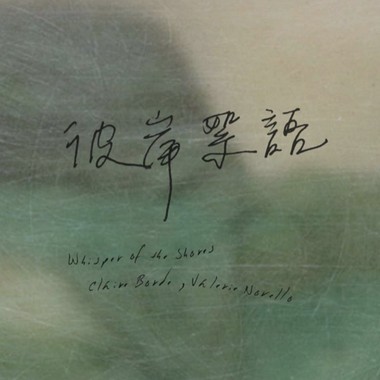 彼岸絮語
Whisper of the Shores
Claire Borde , Valerie Novello